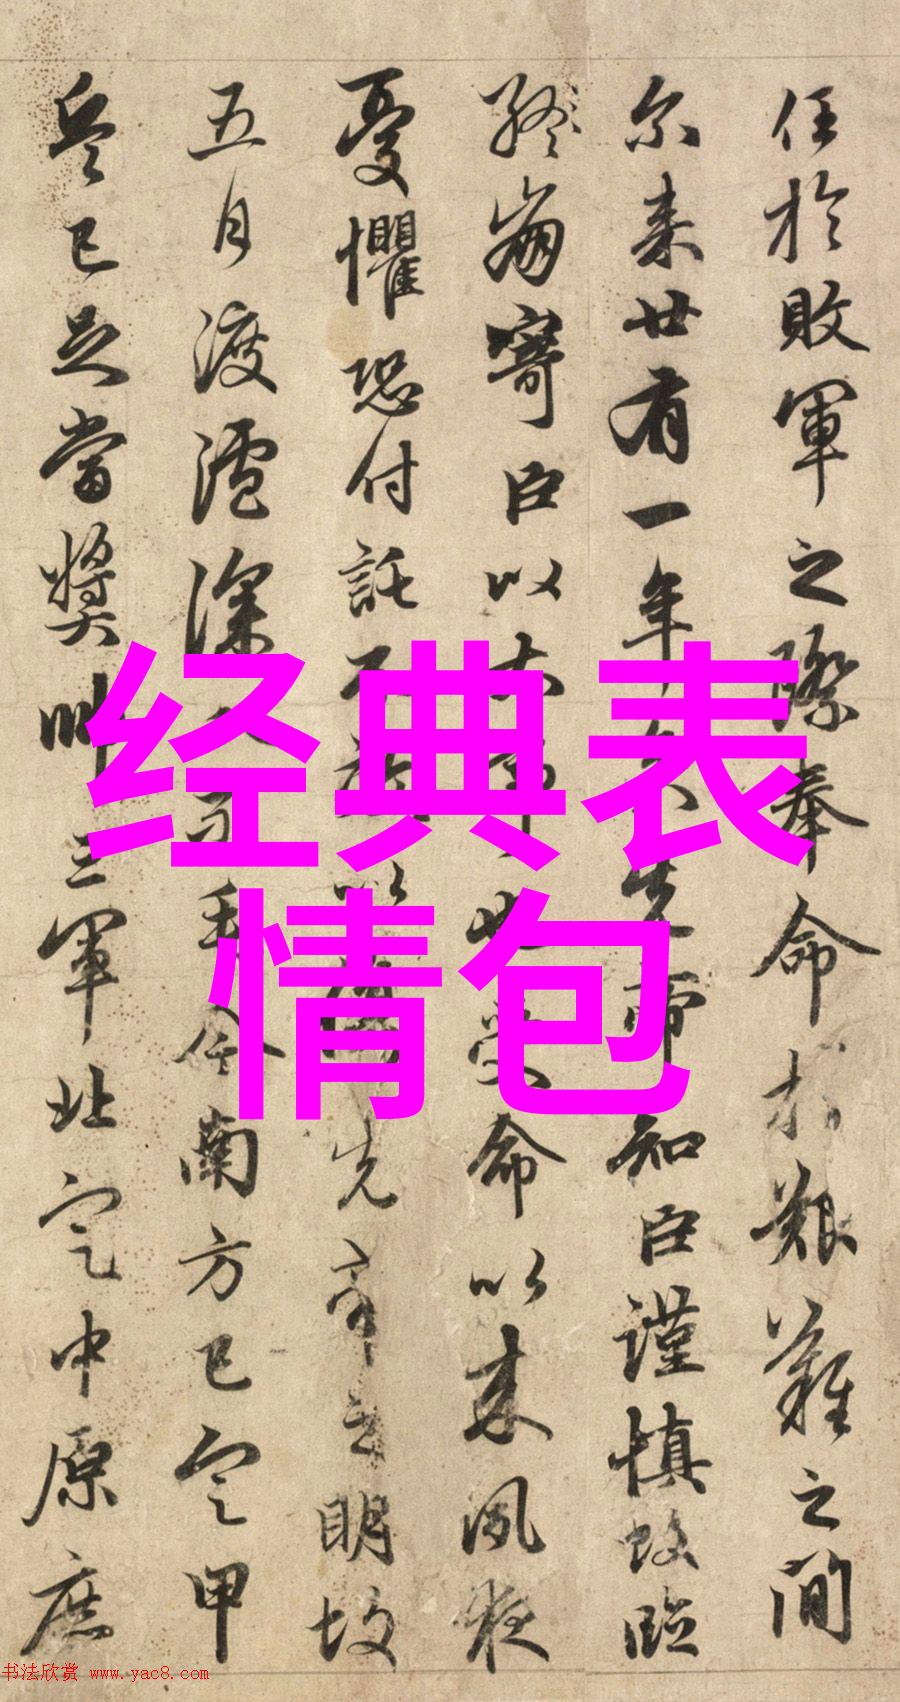 任於敗軍之際奉命於艱難之間
尔来廿有一年矣先帝知臣謹慎故臨
終崩寄臣以大事也受命以来夙夜
憂懼恐付託不效以傷先帝之明故
五月渡瀘深入不毛今南方已定甲
兵已足當奬帥三軍北定中原庶
经典表
情包
书法欣赏 www.yac8.com